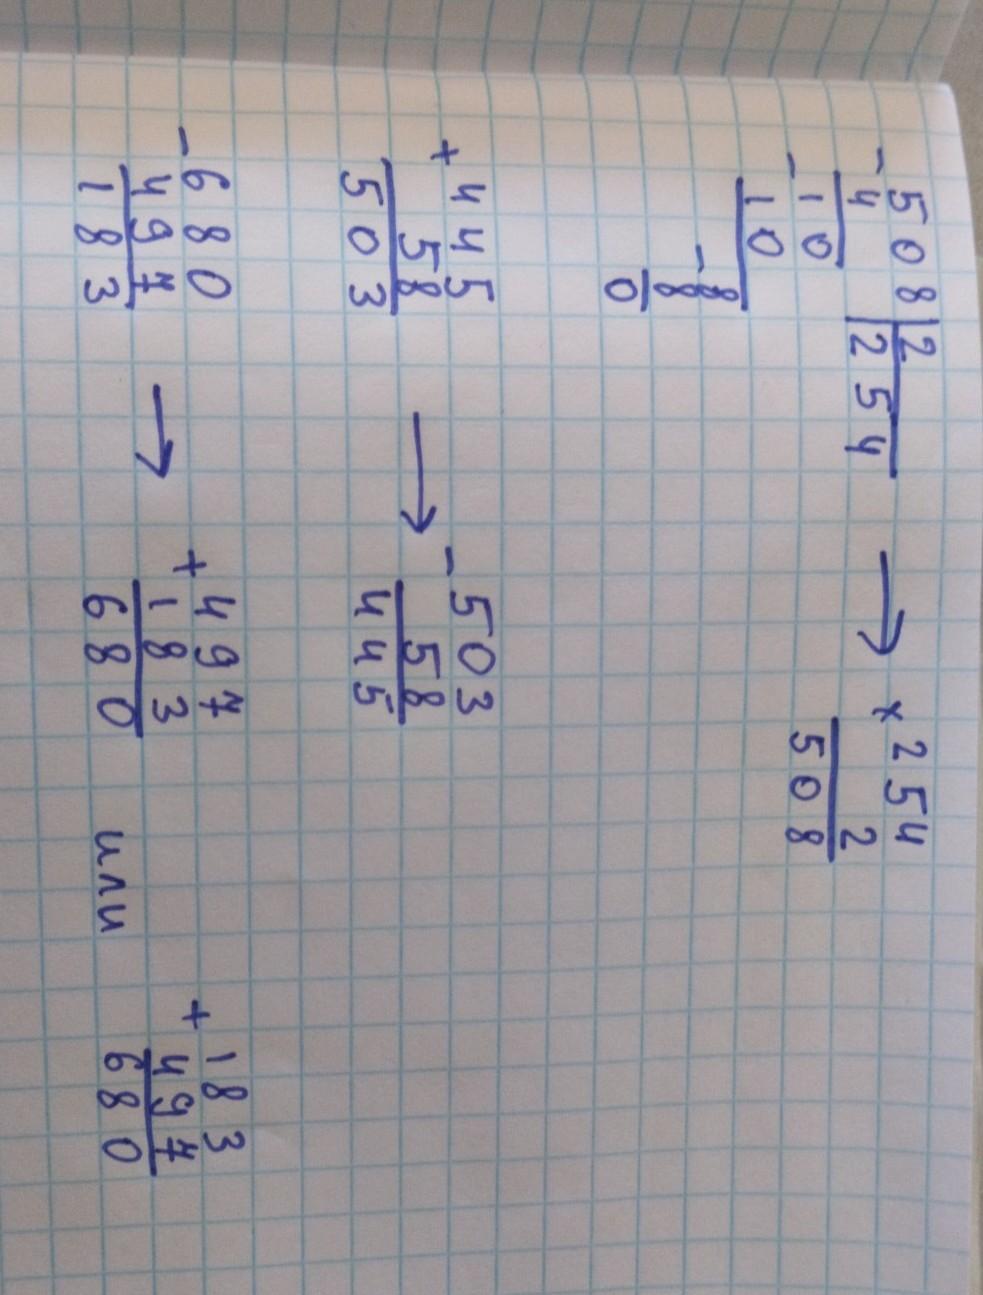 − 508 | 2 → × 254
4 | 254 2
− 10 508
10
− 8
8
0
+ 445 → − 503
58 58
503 445
− 680 → + 497 + 183
497 183 497
183 680 или 680